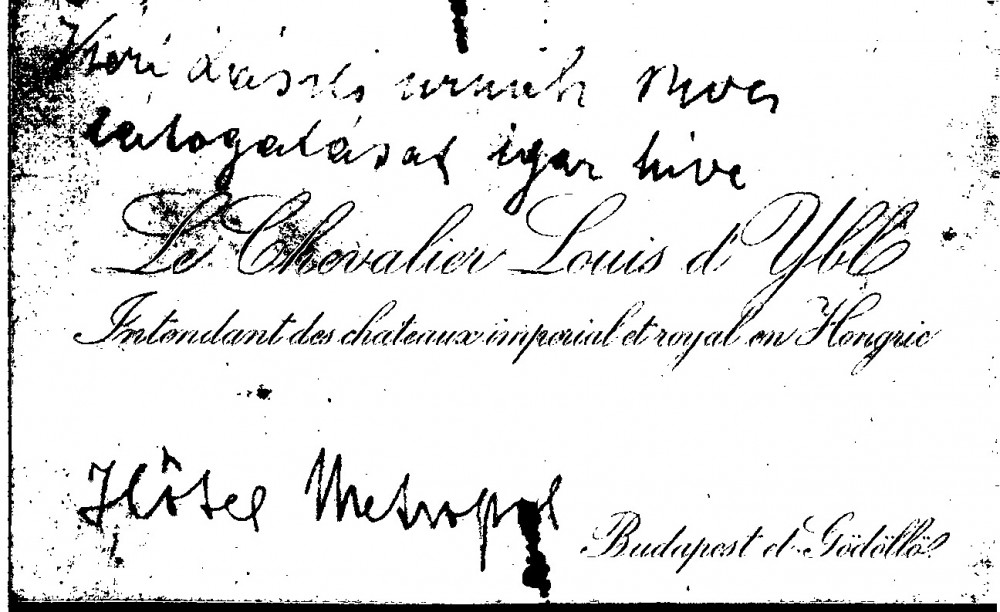 Kéri László urnak szives
látogatását igaz hive
Le Chevalier Louis d'Ybl
Intendant des chateaux imperial et royal en Hongrie
Hôtel Metropol
Budapest et Gödöllö